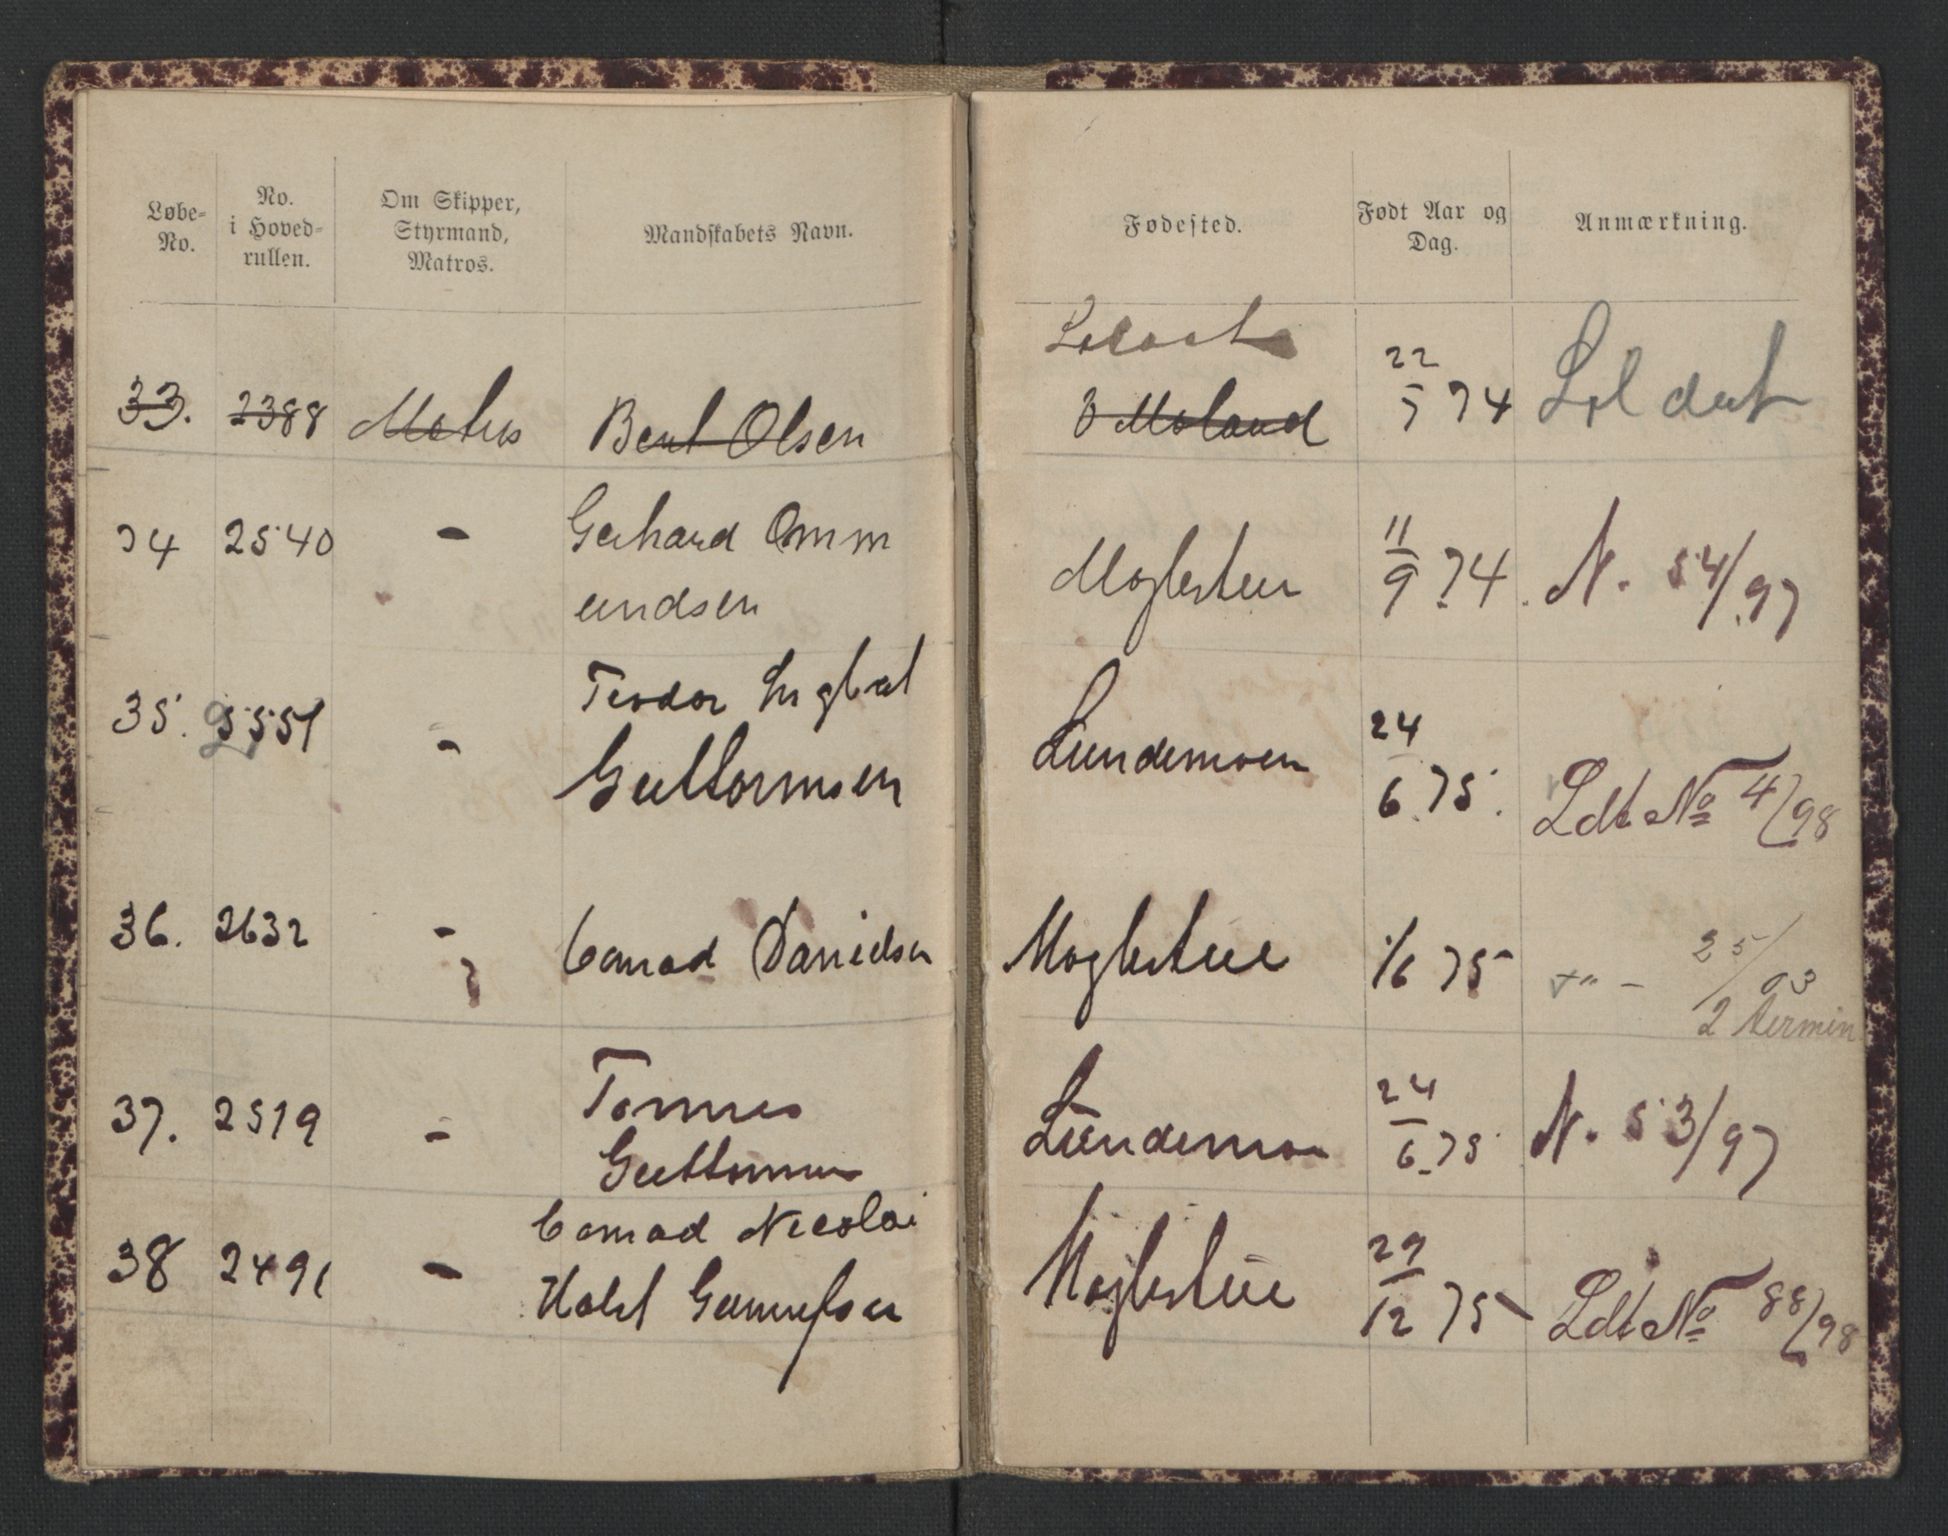 Løbe-
No.
No.
i Hoved-
rullen.
Om Skipper,
Styrmand,
Matros.
Mandskabets Navn.
Fødested.
Født Aar og
Dag.
Anmærkning.
33. 2388 Matros Bent Olsen Ø Moland 22/5 74 Soldat
34 2540 - Gerhard Omm
undsen Moglestue 11/9 74. N. 54/97
35. 2551 - Teodor
Guttormsen Lundemoen 24/6 75. Ldt No 4/98
36. 2632 - Conrad Danielsen Moglestue 1/6 75 25/03
2 termin
37. 2519 - Tomas
Guttormsen Lundemoen 24/6 75 N. 53/97
38 2491 - Conrad Nicolai
Holst Moglestue 29/12 75 Ldt No 88/98